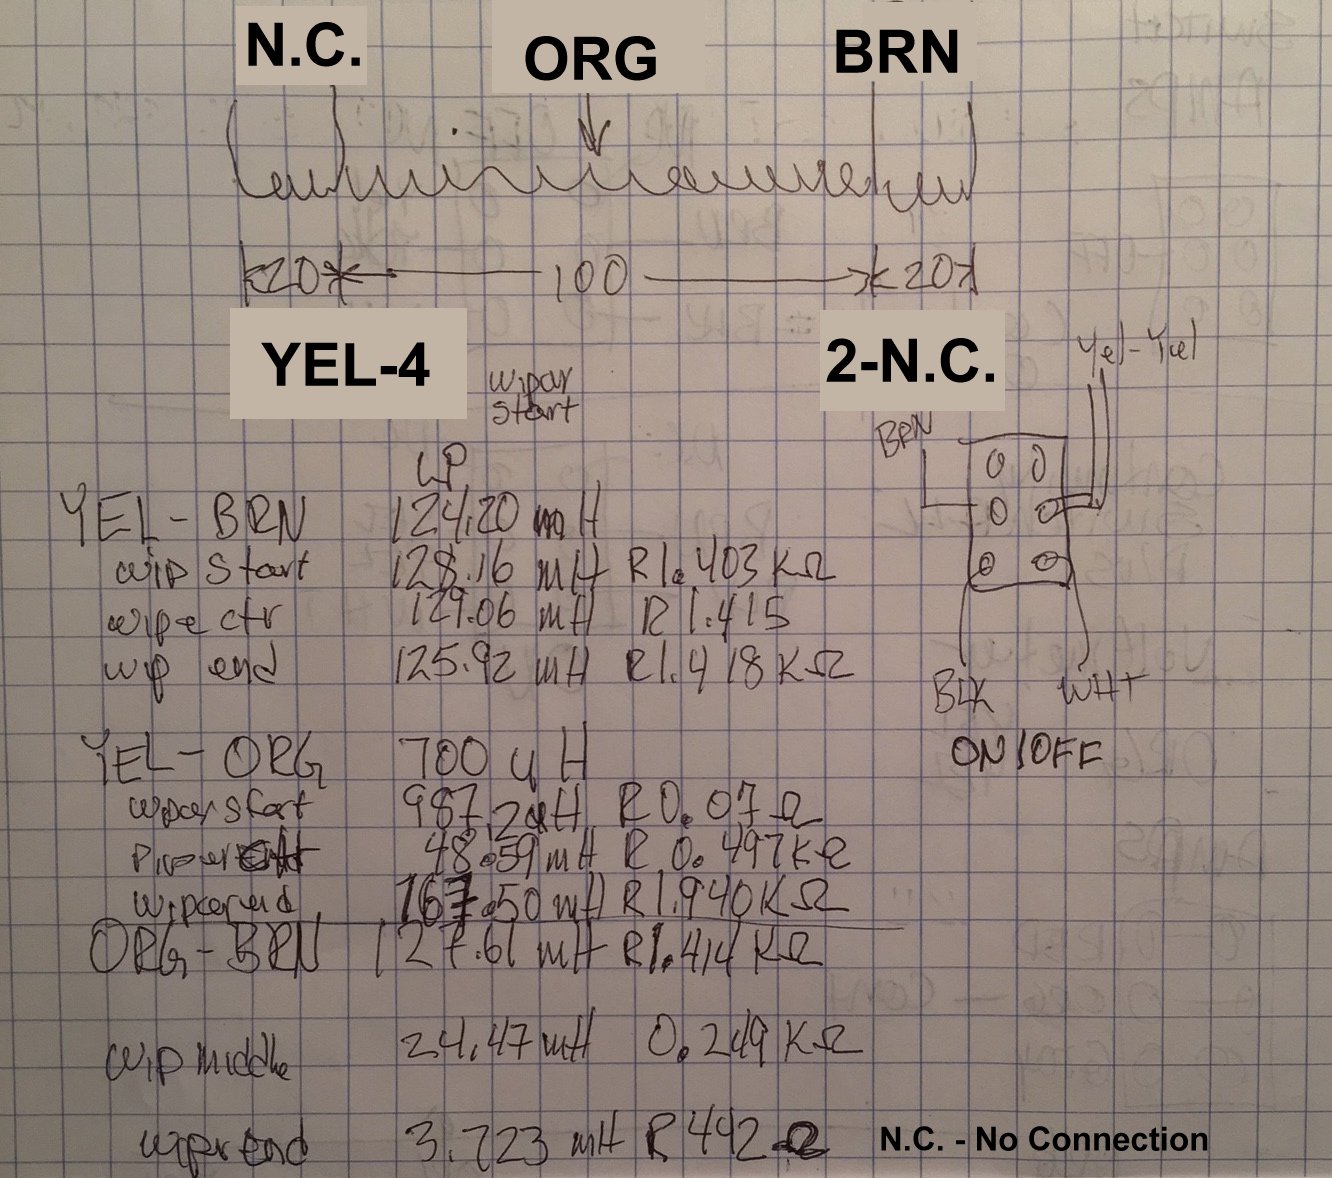 N.C. ORG BRN
20 100 20
YEL-4 2-N.C.
Yel-Yel
wiper
start
BRN
LP
YEL-BRN 124.20 mH
wip start 128.16 mH R1.403KΩ
wipe ctr 129.06 mH R1.415
wip end 125.92 mH R1.418KΩ
BLK WHT
ON/OFF
YEL-ORG 700 uH
wiper start 987.2uH R0.07Ω
48.59mH R0.497KΩ
wiper end 167.50mH R1.940KΩ
ORG-BRN 127.61 mH R1.414KΩ
wip middle 24.47mH 0.249KΩ
wiper end 3.723 mH R492Ω
N.C. - No Connection